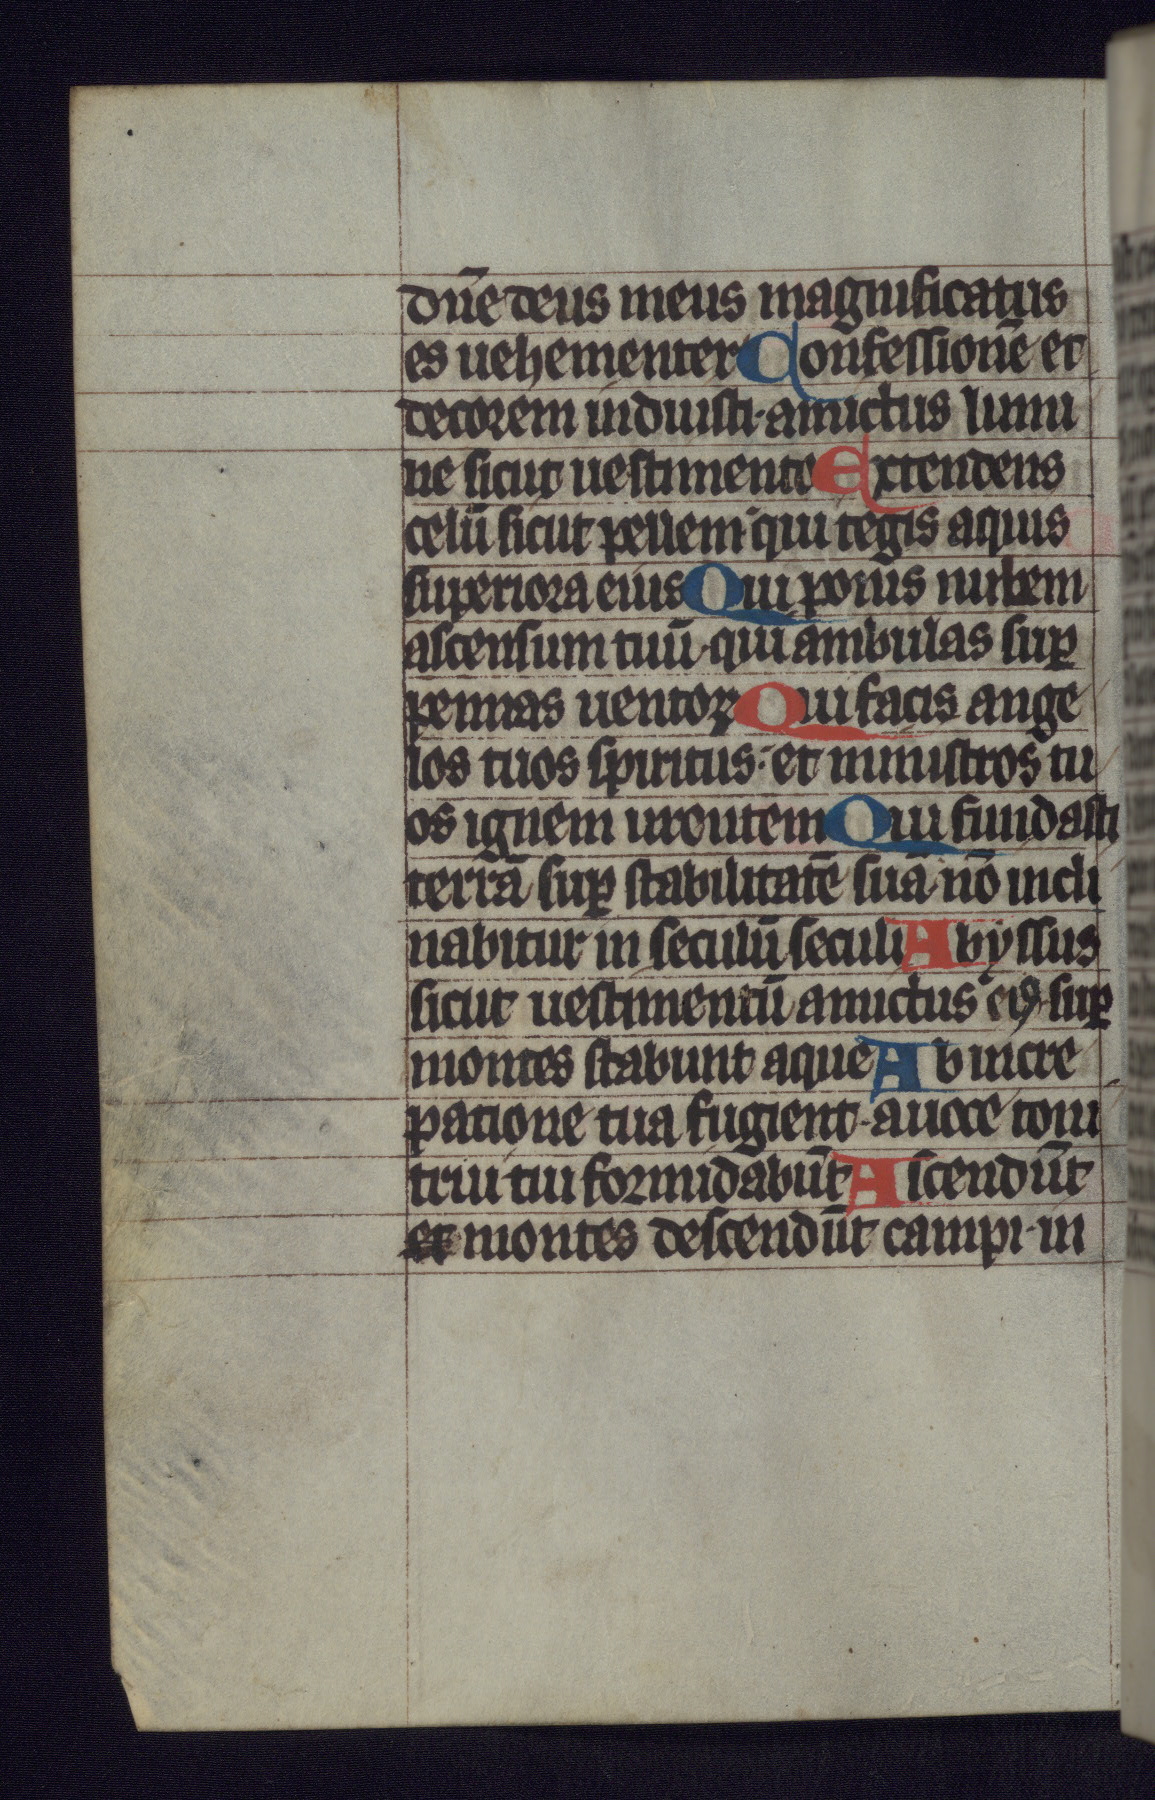 dn̄e deus meus magnificatus
es uehementer Confessionē et
decorem induisti· amictus lumi
ne sicut uestimento Extendens
celū sicut pellem· qui tegis aquis
superiora eius Qui ponis nubem
ascensum tuū· qui ambulas suꝑ
pennas uentoꝝ Qui facis ange
los tuos spiritus· et ministros tu
os ignem urentem Qui fundasti
terrā suꝑ stabilitatē suā· nō incli
nabitur in seculū seculi Abyssus
sicut uestimentū amictus ei9· suꝑ
montes stabunt aque Ab incre
patione tua fugient· a uoce toni
trui tui formidabūt Ascendūt
et montes descendūt campi· in